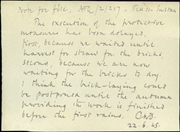 Note for File, APR /2/207 - Tell es Sultan
The execution of the protective
measures has been delayed.
First, because we waited until
harvest for straw for the bricks
second, because we are now
waiting for the bricks to dry
I think the brick-laying could
be postponed until the autumn
providing the work is finished
before the first rains.
22.6.45.